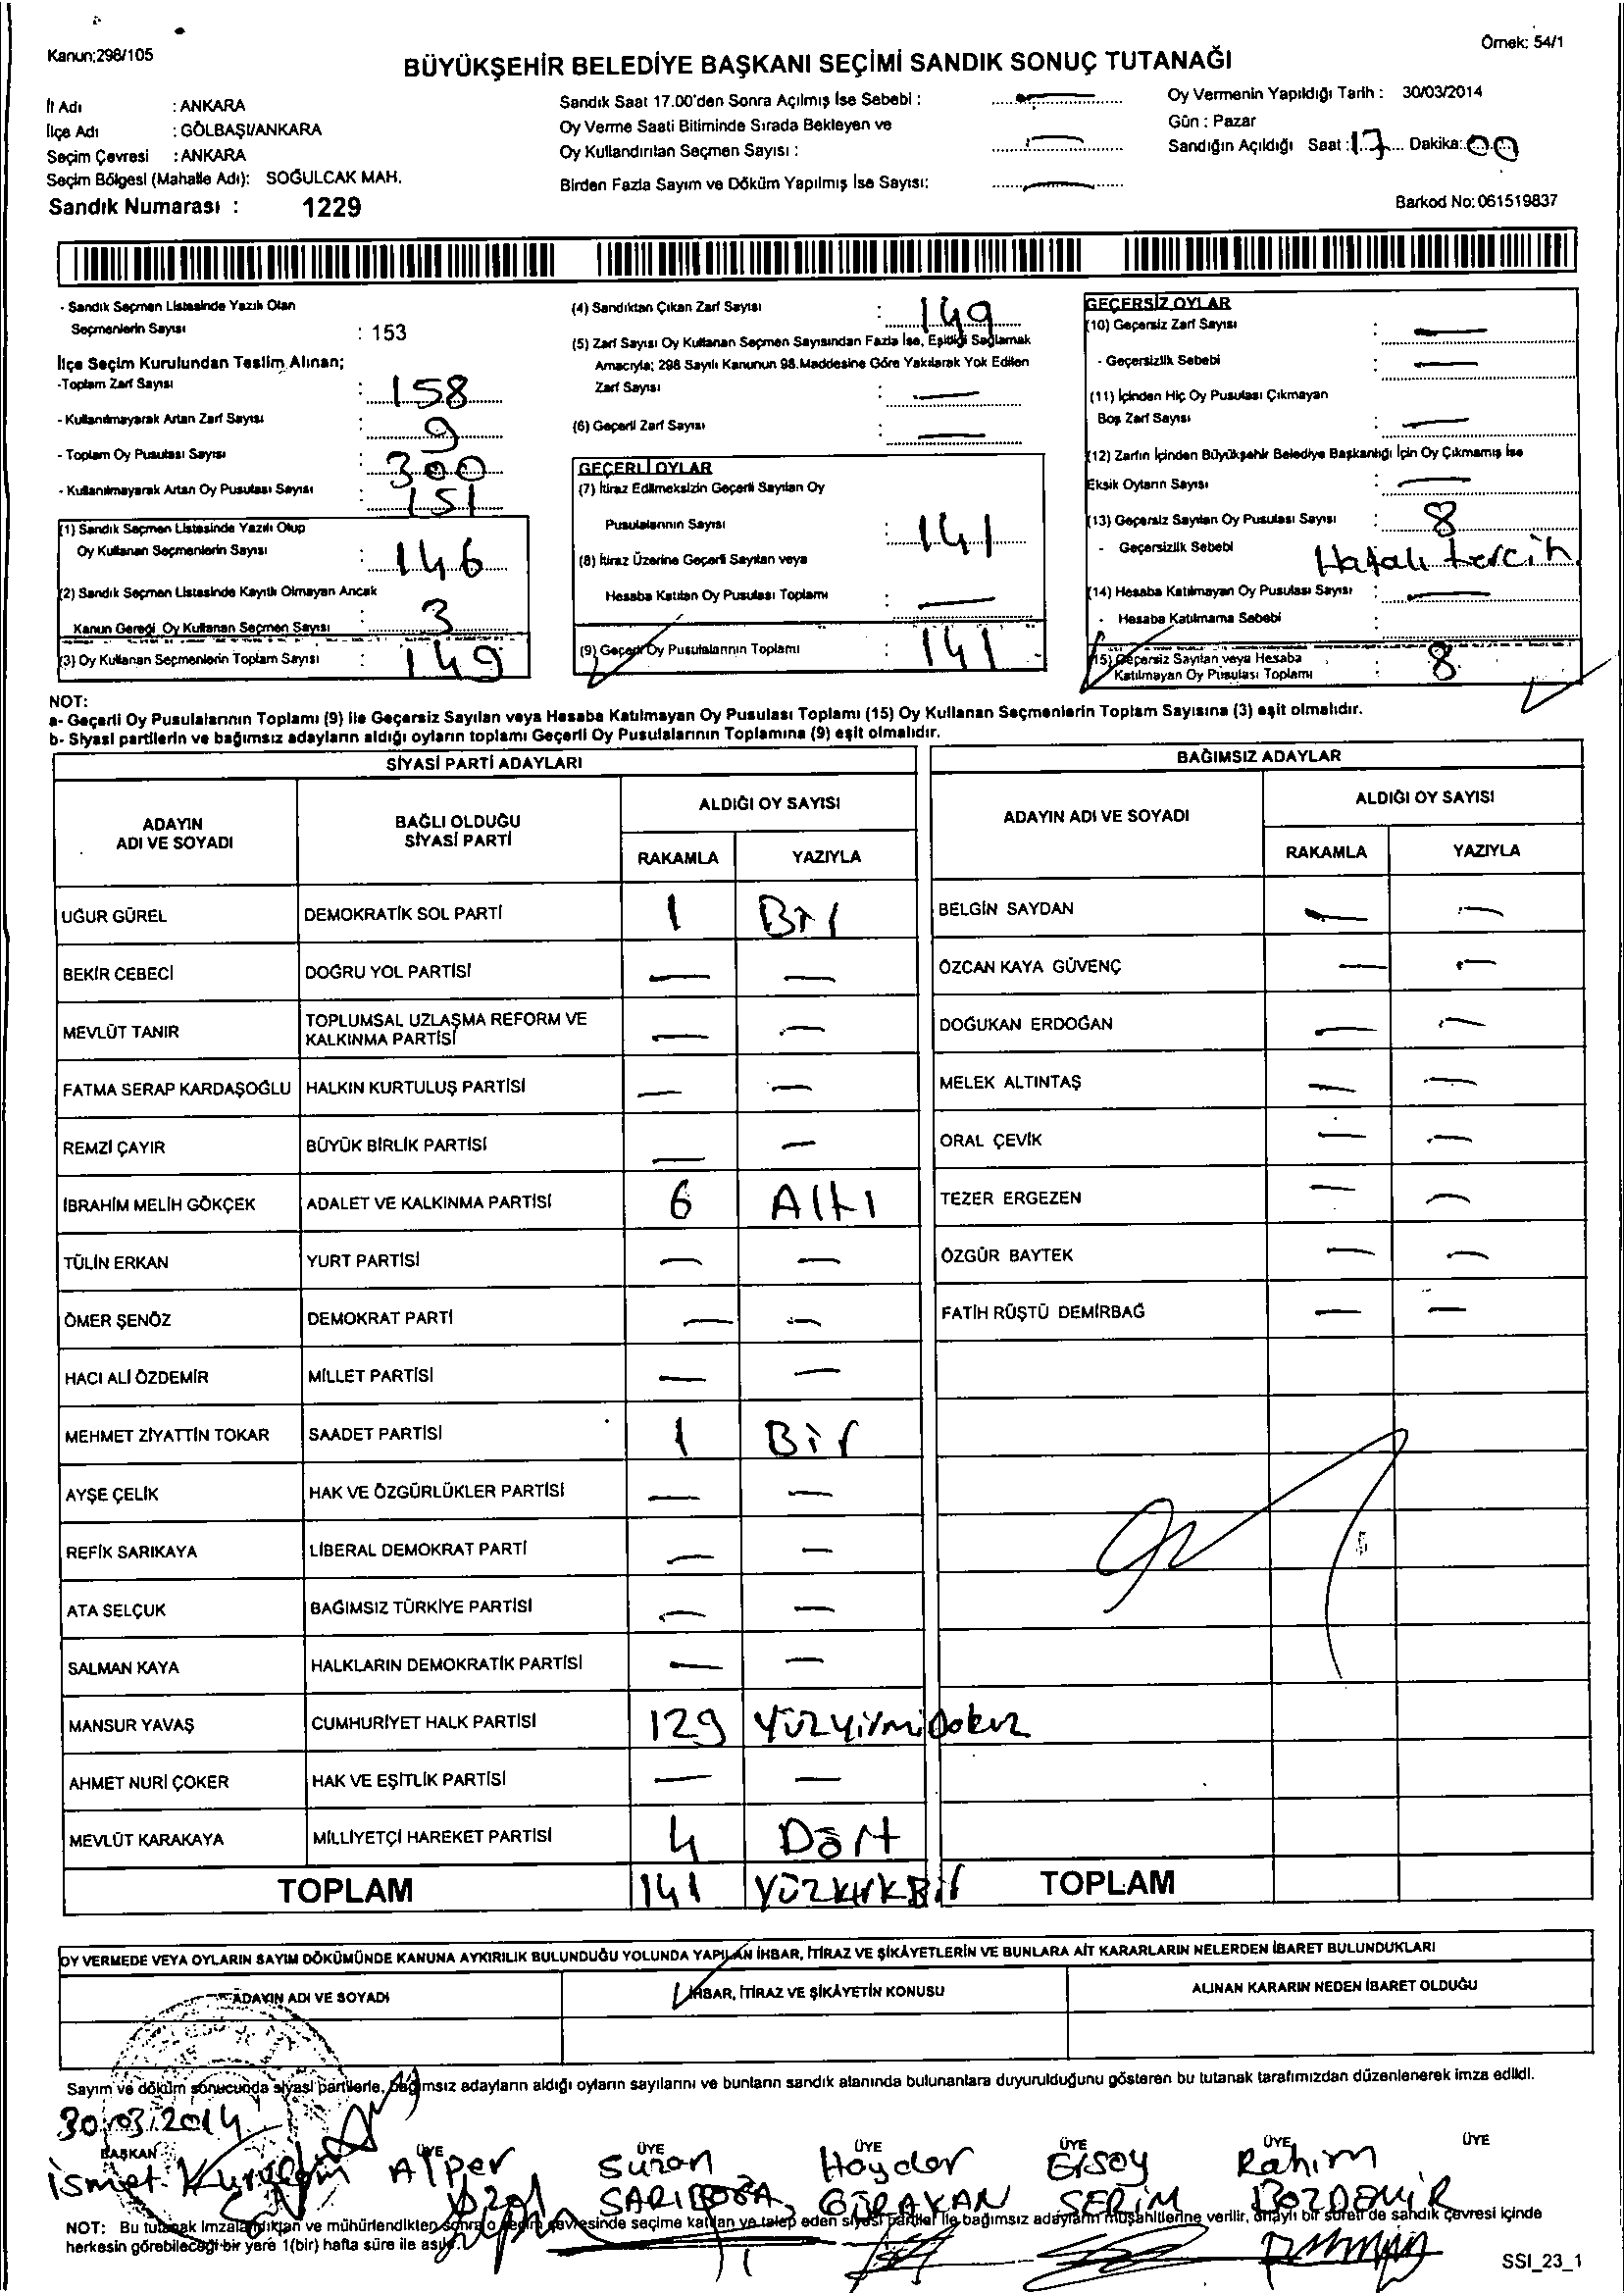 Kanun;298/105
Örnek: 54/1
BÜYÜKŞEHİR BELEDİYE BAŞKANI SEÇİMİ SANDIK SONUÇ TUTANAĞI
İl Adı : ANKARA
İlçe Adı : GÖLBAŞI/ANKARA
Seçim Çevresi : ANKARA
Seçim Bölgesi (Mahalle Adı): SOĞULCAK MAH.
Sandık Numarası : 1229
Sandık Saat 17.00'den Sonra Açılmış İse Sebebi :
Oy Verme Saati Bitiminde Sırada Bekleyen ve
Oy Kullandırılan Seçmen Sayısı :
Birden Fazla Sayım ve Döküm Yapılmış İse Sayısı:
Oy Vermenin Yapıldığı Tarih : 30/03/2014
Gün : Pazar
Sandığın Açıldığı Saat : 17 Dakika: 00
Barkod No: 061519837
- Sandık Seçmen Listesinde Yazılı Olan
Seçmenlerin Sayısı : 153
İlçe Seçim Kurulundan Teslim Alınan;
-Toplam Zarf Sayısı : 158
- Kullanılmayarak Artan Zarf Sayısı : 9
- Toplam Oy Pusulası Sayısı : 300
- Kullanılmayarak Artan Oy Pusulası Sayısı : 151
(1) Sandık Seçmen Listesinde Yazılı Olup
Oy Kullanan Seçmenlerin Sayısı : 146
(2) Sandık Seçmen Listesinde Kayıtlı Olmayan Ancak
Kanun Gereği Oy Kullanan Seçmen Sayısı : 3
(3) Oy Kullanan Seçmenlerin Toplam Sayısı : 149
(4) Sandıktan Çıkan Zarf Sayısı : 149
(5) Zarf Sayısı Oy Kullanan Seçmen Sayısından Fazla İse, Eşitliği Sağlamak
Amacıyla; 298 Sayılı Kanunun 98.Maddesine Göre Yakılarak Yok Edilen
Zarf Sayısı : —
(6) Geçerli Zarf Sayısı : —
GEÇERLİ OYLAR
(7) İtiraz Edilmeksizin Geçerli Sayılan Oy
Pusulalarının Sayısı : 141
(8) İtiraz Üzerine Geçerli Sayılan veya
Hesaba Katılan Oy Pusulası Toplamı : —
(9) Geçerli Oy Pusulalarının Toplamı : 141
GEÇERSİZ OYLAR
(10) Geçersiz Zarf Sayısı : —
- Geçersizlik Sebebi : —
(11) İçinden Hiç Oy Pusulası Çıkmayan
Boş Zarf Sayısı : —
(12) Zarfın İçinden Büyükşehir Belediye Başkanlığı İçin Oy Çıkmamış İse
Eksik Oyların Sayısı : —
(13) Geçersiz Sayılan Oy Pusulası Sayısı : 8
- Geçersizlik Sebebi Hatalı tercih
(14) Hesaba Katılmayan Oy Pusulası Sayısı : —
- Hesaba Katılmama Sebebi :
(15) Geçersiz Sayılan veya Hesaba
Katılmayan Oy Pusulası Toplamı : 8
NOT:
a- Geçerli Oy Pusulalarının Toplamı (9) ile Geçersiz Sayılan veya Hesaba Katılmayan Oy Pusulası Toplamı (15) Oy Kullanan Seçmenlerin Toplam Sayısına (3) eşit olmalıdır.
b- Siyasi partilerin ve bağımsız adayların aldığı oyların toplamı Geçerli Oy Pusulalarının Toplamına (9) eşit olmalıdır.
SİYASİ PARTİ ADAYLARI
ADAYIN
ADI VE SOYADI
BAĞLI OLDUĞU
SİYASİ PARTİ
ALDIĞI OY SAYISI
RAKAMLA YAZIYLA
UĞUR GÜREL DEMOKRATİK SOL PARTİ 1 Bir
BEKİR CEBECİ DOĞRU YOL PARTİSİ — —
MEVLÜT TANIR TOPLUMSAL UZLAŞMA REFORM VE
KALKINMA PARTİSİ — —
FATMA SERAP KARDAŞOĞLU HALKIN KURTULUŞ PARTİSİ — —
REMZİ ÇAYIR BÜYÜK BİRLİK PARTİSİ — —
İBRAHİM MELİH GÖKÇEK ADALET VE KALKINMA PARTİSİ 6 Altı
TÜLİN ERKAN YURT PARTİSİ — —
ÖMER ŞENÖZ DEMOKRAT PARTİ — —
HACI ALİ ÖZDEMİR MİLLET PARTİSİ — —
MEHMET ZİYATTİN TOKAR SAADET PARTİSİ 1 Bir
AYŞE ÇELİK HAK VE ÖZGÜRLÜKLER PARTİSİ — —
REFİK SARIKAYA LİBERAL DEMOKRAT PARTİ — —
ATA SELÇUK BAĞIMSIZ TÜRKİYE PARTİSİ — —
SALMAN KAYA HALKLARIN DEMOKRATİK PARTİSİ — —
MANSUR YAVAŞ CUMHURİYET HALK PARTİSİ 129 Yüzyirmidokuz
AHMET NURİ ÇOKER HAK VE EŞİTLİK PARTİSİ — —
MEVLÜT KARAKAYA MİLLİYETÇİ HAREKET PARTİSİ 4 Dört
TOPLAM 141 YüzkırkBir
BAĞIMSIZ ADAYLAR
ADAYIN ADI VE SOYADI
ALDIĞI OY SAYISI
RAKAMLA YAZIYLA
BELGİN SAYDAN — —
ÖZCAN KAYA GÜVENÇ — —
DOĞUKAN ERDOĞAN — —
MELEK ALTINTAŞ — —
ORAL ÇEVİK — —
TEZER ERGEZEN — —
ÖZGÜR BAYTEK — —
FATİH RÜŞTÜ DEMİRBAĞ — —
TOPLAM
OY VERMEDE VEYA OYLARIN SAYIM DÖKÜMÜNDE KANUNA AYKIRILIK BULUNDUĞU YOLUNDA YAPILAN İHBAR, İTİRAZ VE ŞİKÂYETLERİN VE BUNLARA AİT KARARLARIN NELERDEN İBARET BULUNDUKLARI
ADAYIN ADI VE SOYADI
İHBAR, İTİRAZ VE ŞİKÂYETİN KONUSU
ALINAN KARARIN NEDEN İBARET OLDUĞU
Sayım ve döküm sonucunda siyasi partilerle, bağımsız adayların aldığı oyların sayılarını ve bunların sandık alanında bulunanlara duyurulduğunu gösteren bu tutanak tarafımızdan düzenlenerek imza edildi.
30.03.2014
BAŞKAN ÜYE ÜYE ÜYE ÜYE ÜYE ÜYE
İsmet Alper Suzan Haydar Ersoy Rahim
SERİM BOZDEMİR
NOT: Bu tutanak imzalandıktan ve mühürlendikten sonra o seçim çevresinde seçime katılan ve talep eden siyasi partiler ile bağımsız adayların müşahitlerine verilir, onaylı bir sureti de sandık çevresi içinde
herkesin görebileceği bir yere 1(bir) hafta süre ile asılır.
SSI_23_1